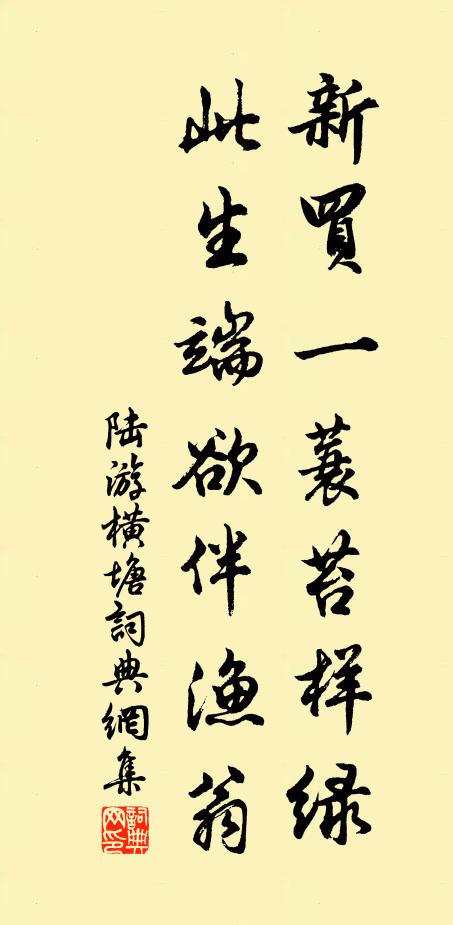 新買一蓑苔样绿
此生端欲伴漁翁
陆游橫塘詞典網集
詞典网印